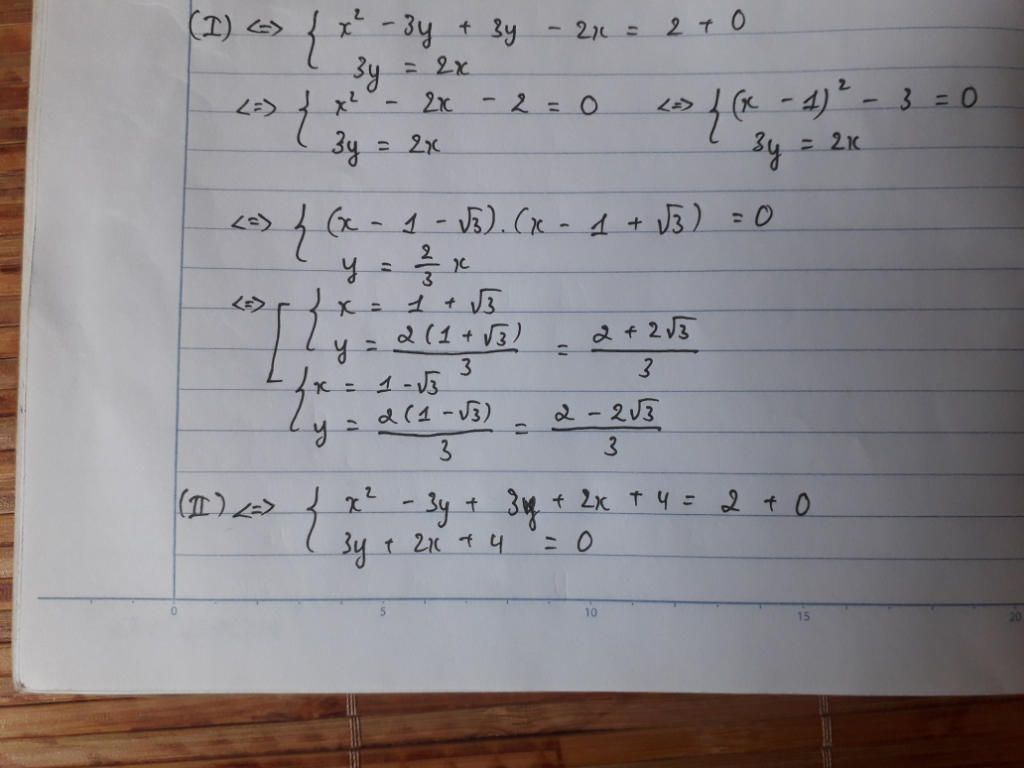 (I) <=> { x² - 3y + 3y - 2x = 2 + 0
3y = 2x
<=> { x² - 2x - 2 = 0 <=> { (x - 1)² - 3 = 0
3y = 2x 3y = 2x
<=> { (x - 1 - √3).(x - 1 + √3) = 0
y = 2/3 x
<=> [ { x = 1 + √3
y = 2(1 + √3)/3 = (2 + 2√3)/3
{ x = 1 - √3
y = 2(1 - √3)/3 = (2 - 2√3)/3
(II) <=> { x² - 3y + 3y + 2x + 4 = 2 + 0
3y + 2x + 4 = 0
0 5 10 15 20